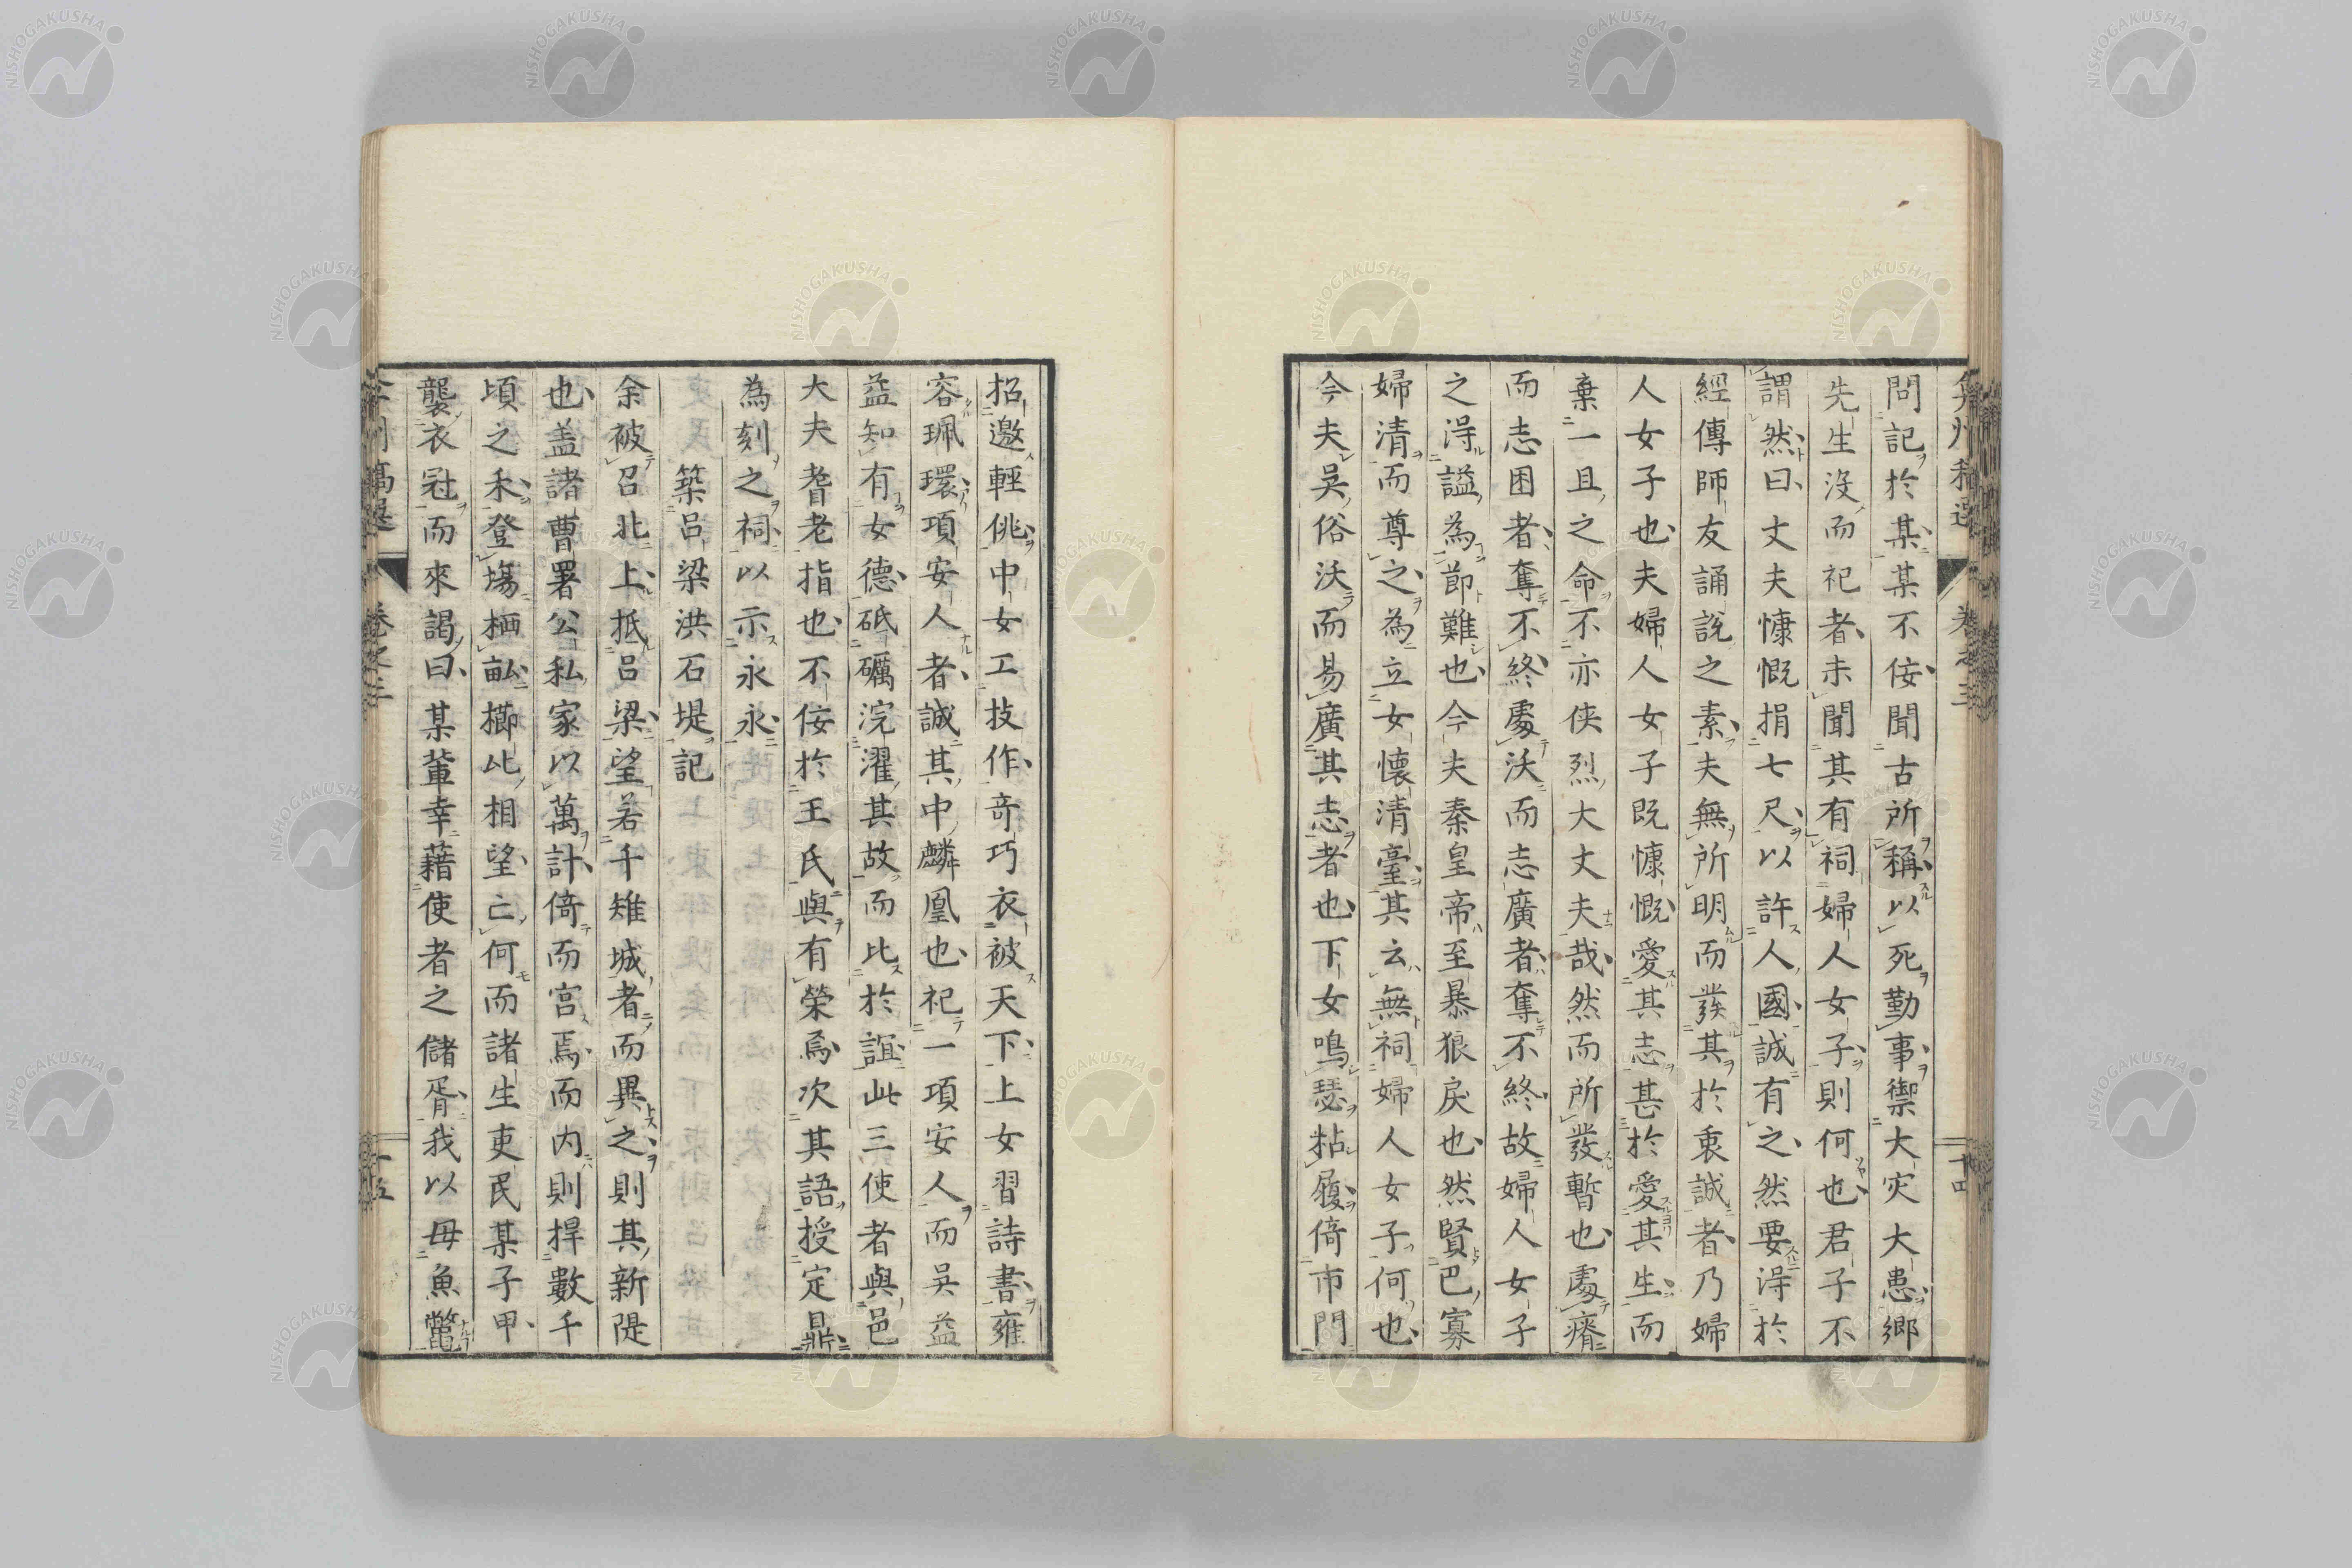 問記於某某不佞聞古所稱以死勤事禦大灾大患鄉
先生沒而祀者未聞其有祠婦人女子則何也君子不
謂然曰丈夫慷慨捐七尺以許人國誠有之然要淂於
經傳師友誦説之素夫無所明而發其於衷誠者乃婦
人女子也夫婦人女子既慷慨愛其志甚於愛其生而
棄一旦之命不亦俠烈大丈夫哉然而所發暫也處瘠
而志困者奪不終處沃而志廣者奪不終故婦人女子
之淂謚為節難也今夫秦皇帝至暴狼戾也然賢巴寡
婦清而尊之為立女懷清臺其云無祠婦人女子何也
今夫吳俗沃而易廣其志者也下女鳴瑟粘履倚市門
招邀輕佻中女工技作奇巧衣被天下上女習詩書雍
容珮環項安人者誠其中麟凰也祀一項安人而吳益
益知有女德砥礪浣濯其故而比於誼此三使者與邑
大夫耆老指也不佞於王氏與有榮焉次其語授定鼎
為刻之祠以示永永
築呂梁洪石堤記
余被召北上抵呂梁望若千雉城者而異之則其新隄
也盖諸曹署公私家以萬計倚而宮焉而内則捍數千
頃之禾登塲栖畝櫛比相望亡何而諸生吏民某子甲
襲衣冠而來謁曰某軰幸藉使者之儲胥我以毋魚鼈
卷之三
十五
NISHOGAKUSHA